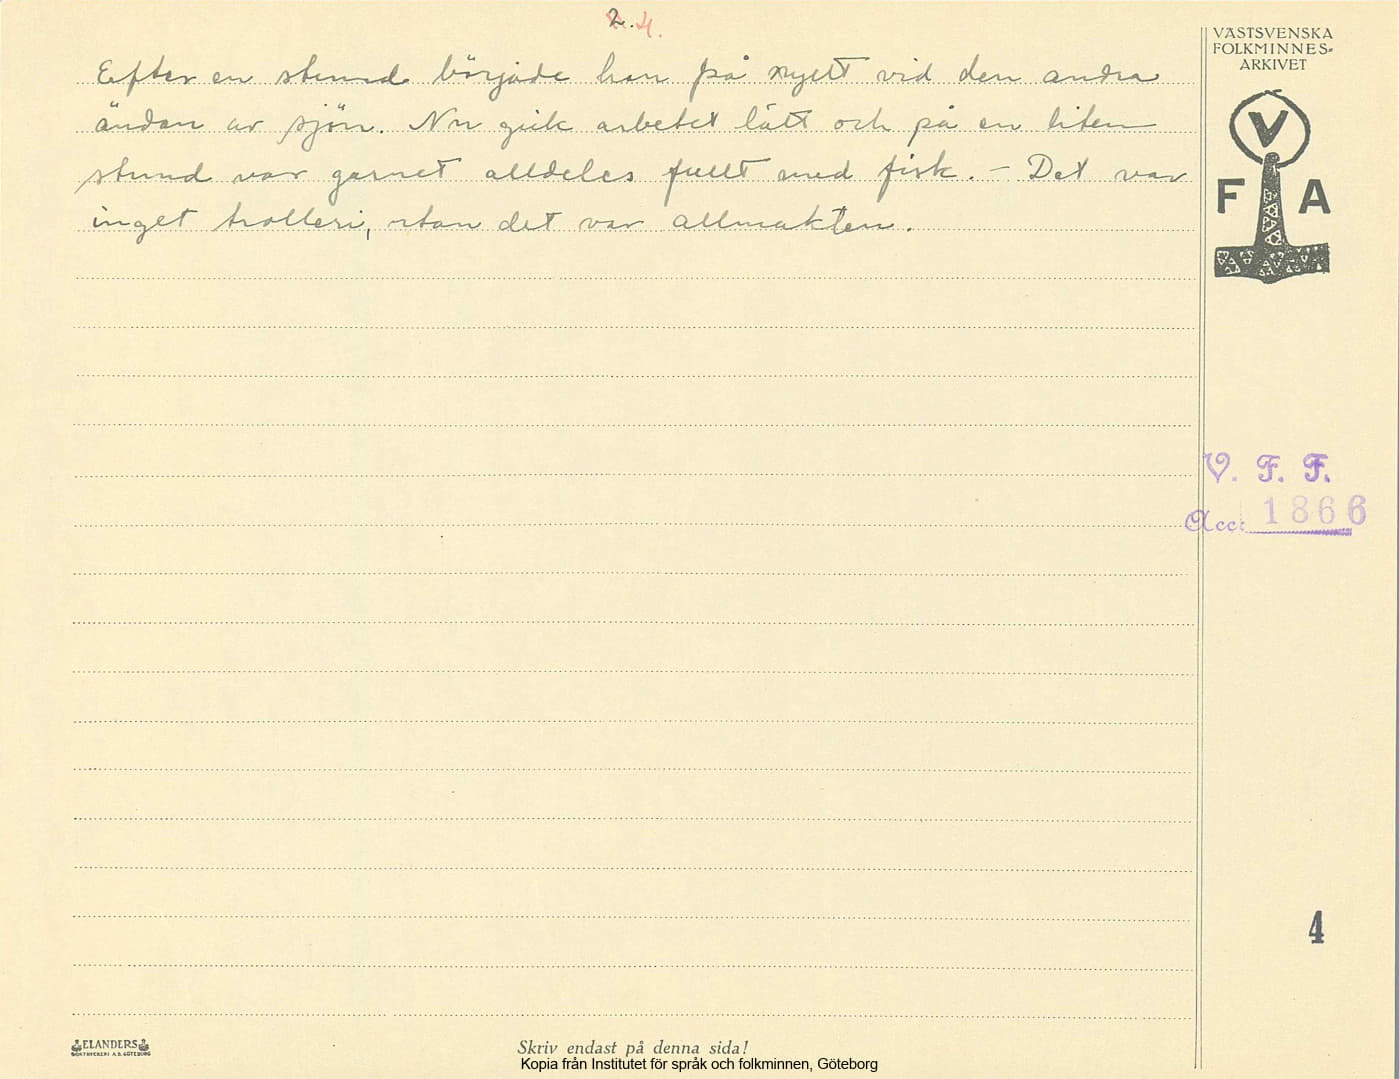 2. 4.
VÄSTSVENSKA
FOLKMINNES-
ARKIVET
Efter en stund började han på nytt vid den andra
ändan av sjön. Nu gick arbetet lätt och på en liten
stund var garnet alldeles fullt med fisk. – Det var
inget trolleri, utan det var allmakten.
V
F A
V. F. F.
Acc: 1866
4
ELANDERS
BOKTRYCKERI A.B. GÖTEBORG
Skriv endast på denna sida!
Kopia från Institutet för språk och folkminnen, Göteborg